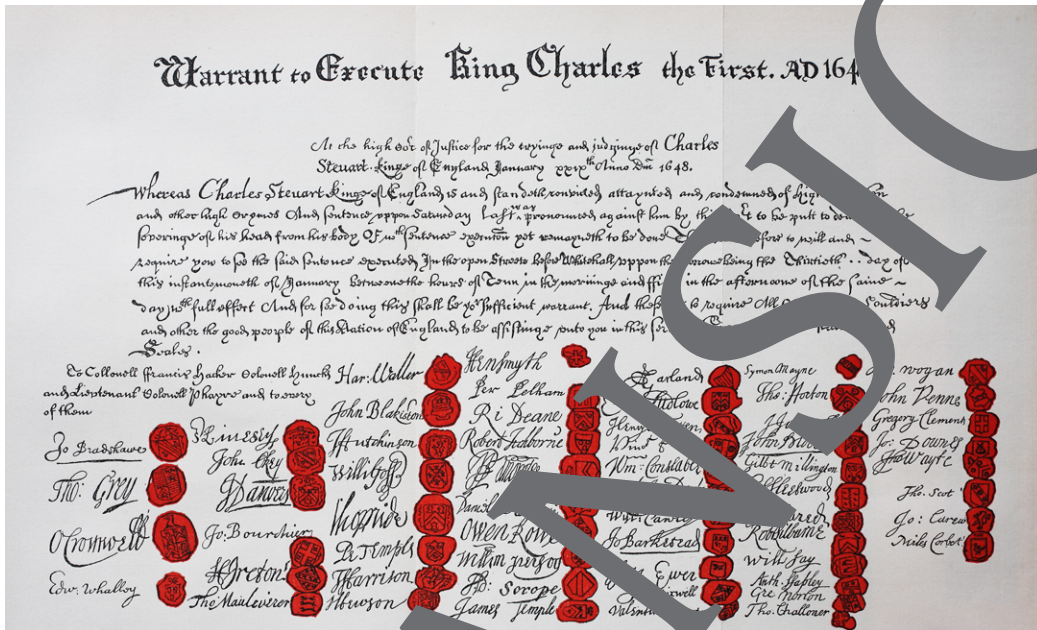 Warrant to Execute King Charles the First. AD 164
At the high Cort of Justice for the tryinge and judginge of Charles
Steuart kinge of England January xxixth Anno Dm 1648.
Whereas Charles Steuart kinge of England is and standeth convicted attaynted and condemned of high
and other high Crymes And sentence uppon Saturday last was pronounced against him by this to be putt to
severinge of his head from his body Of wch sentence execucon yet remayneth to be done to will and
require you to see the said sentence executed In the open Streete before Whitehall uppon the being the Thirtieth day of
this instante moneth of January betweene the houres of Tenn in the morninge and in the afternoone of the same
day wth full effect And for soe doing this shall be yor sufficient warrant. And to require All Souldiers
and other the good people of this Nation of England to be assistinge unto you in this
Seales.
To Collonell Francis Hacker Colonell Huncks
and Lieutenant Colonell Phayre and to every
of them
Jo Bradshawe
Tho: Grey
O Cromwell
Edw. Whalley
M Livesey
John Okey
J Danvers
Jo: Bourchier
H Ireton
Tho Mauleverer
Har: Waller
John Blakiston
J Hutchinson
Willi Goff
Tho Pride
P Temple
T Harrison
J Hewson
Hen Smyth
Per Pelham
Ri Deane
Robert Tichborne
H Edwardes
Daniel
Owen Rowe
William Purfoy
Ad: Scrope
James Temple
Garland
Ludlowe
Henry
Wm: Constable
Jo Barkstead
Ewer
Valentine
Symon Mayne
Tho: Horton
J Jones
John
Gilbt Millington
G Fleetwood
J Alured
Rob Lilburne
Will Say
Anth Stapley
Gre Norton
Tho: Challoner
Wogan
John Venn
Gregory Clement
Jo: Downes
Tho Wayte
Tho: Scot
Jo: Carew
Miles Corbet
NSIO